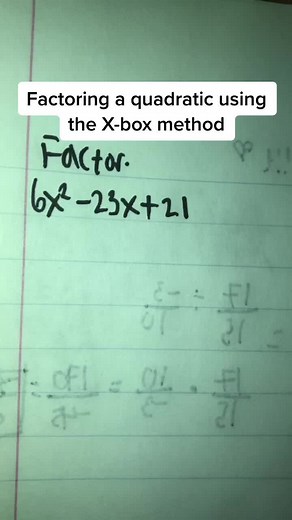 Factoring a quadratic using
the X-box method
Factor.
6x² - 23x + 21